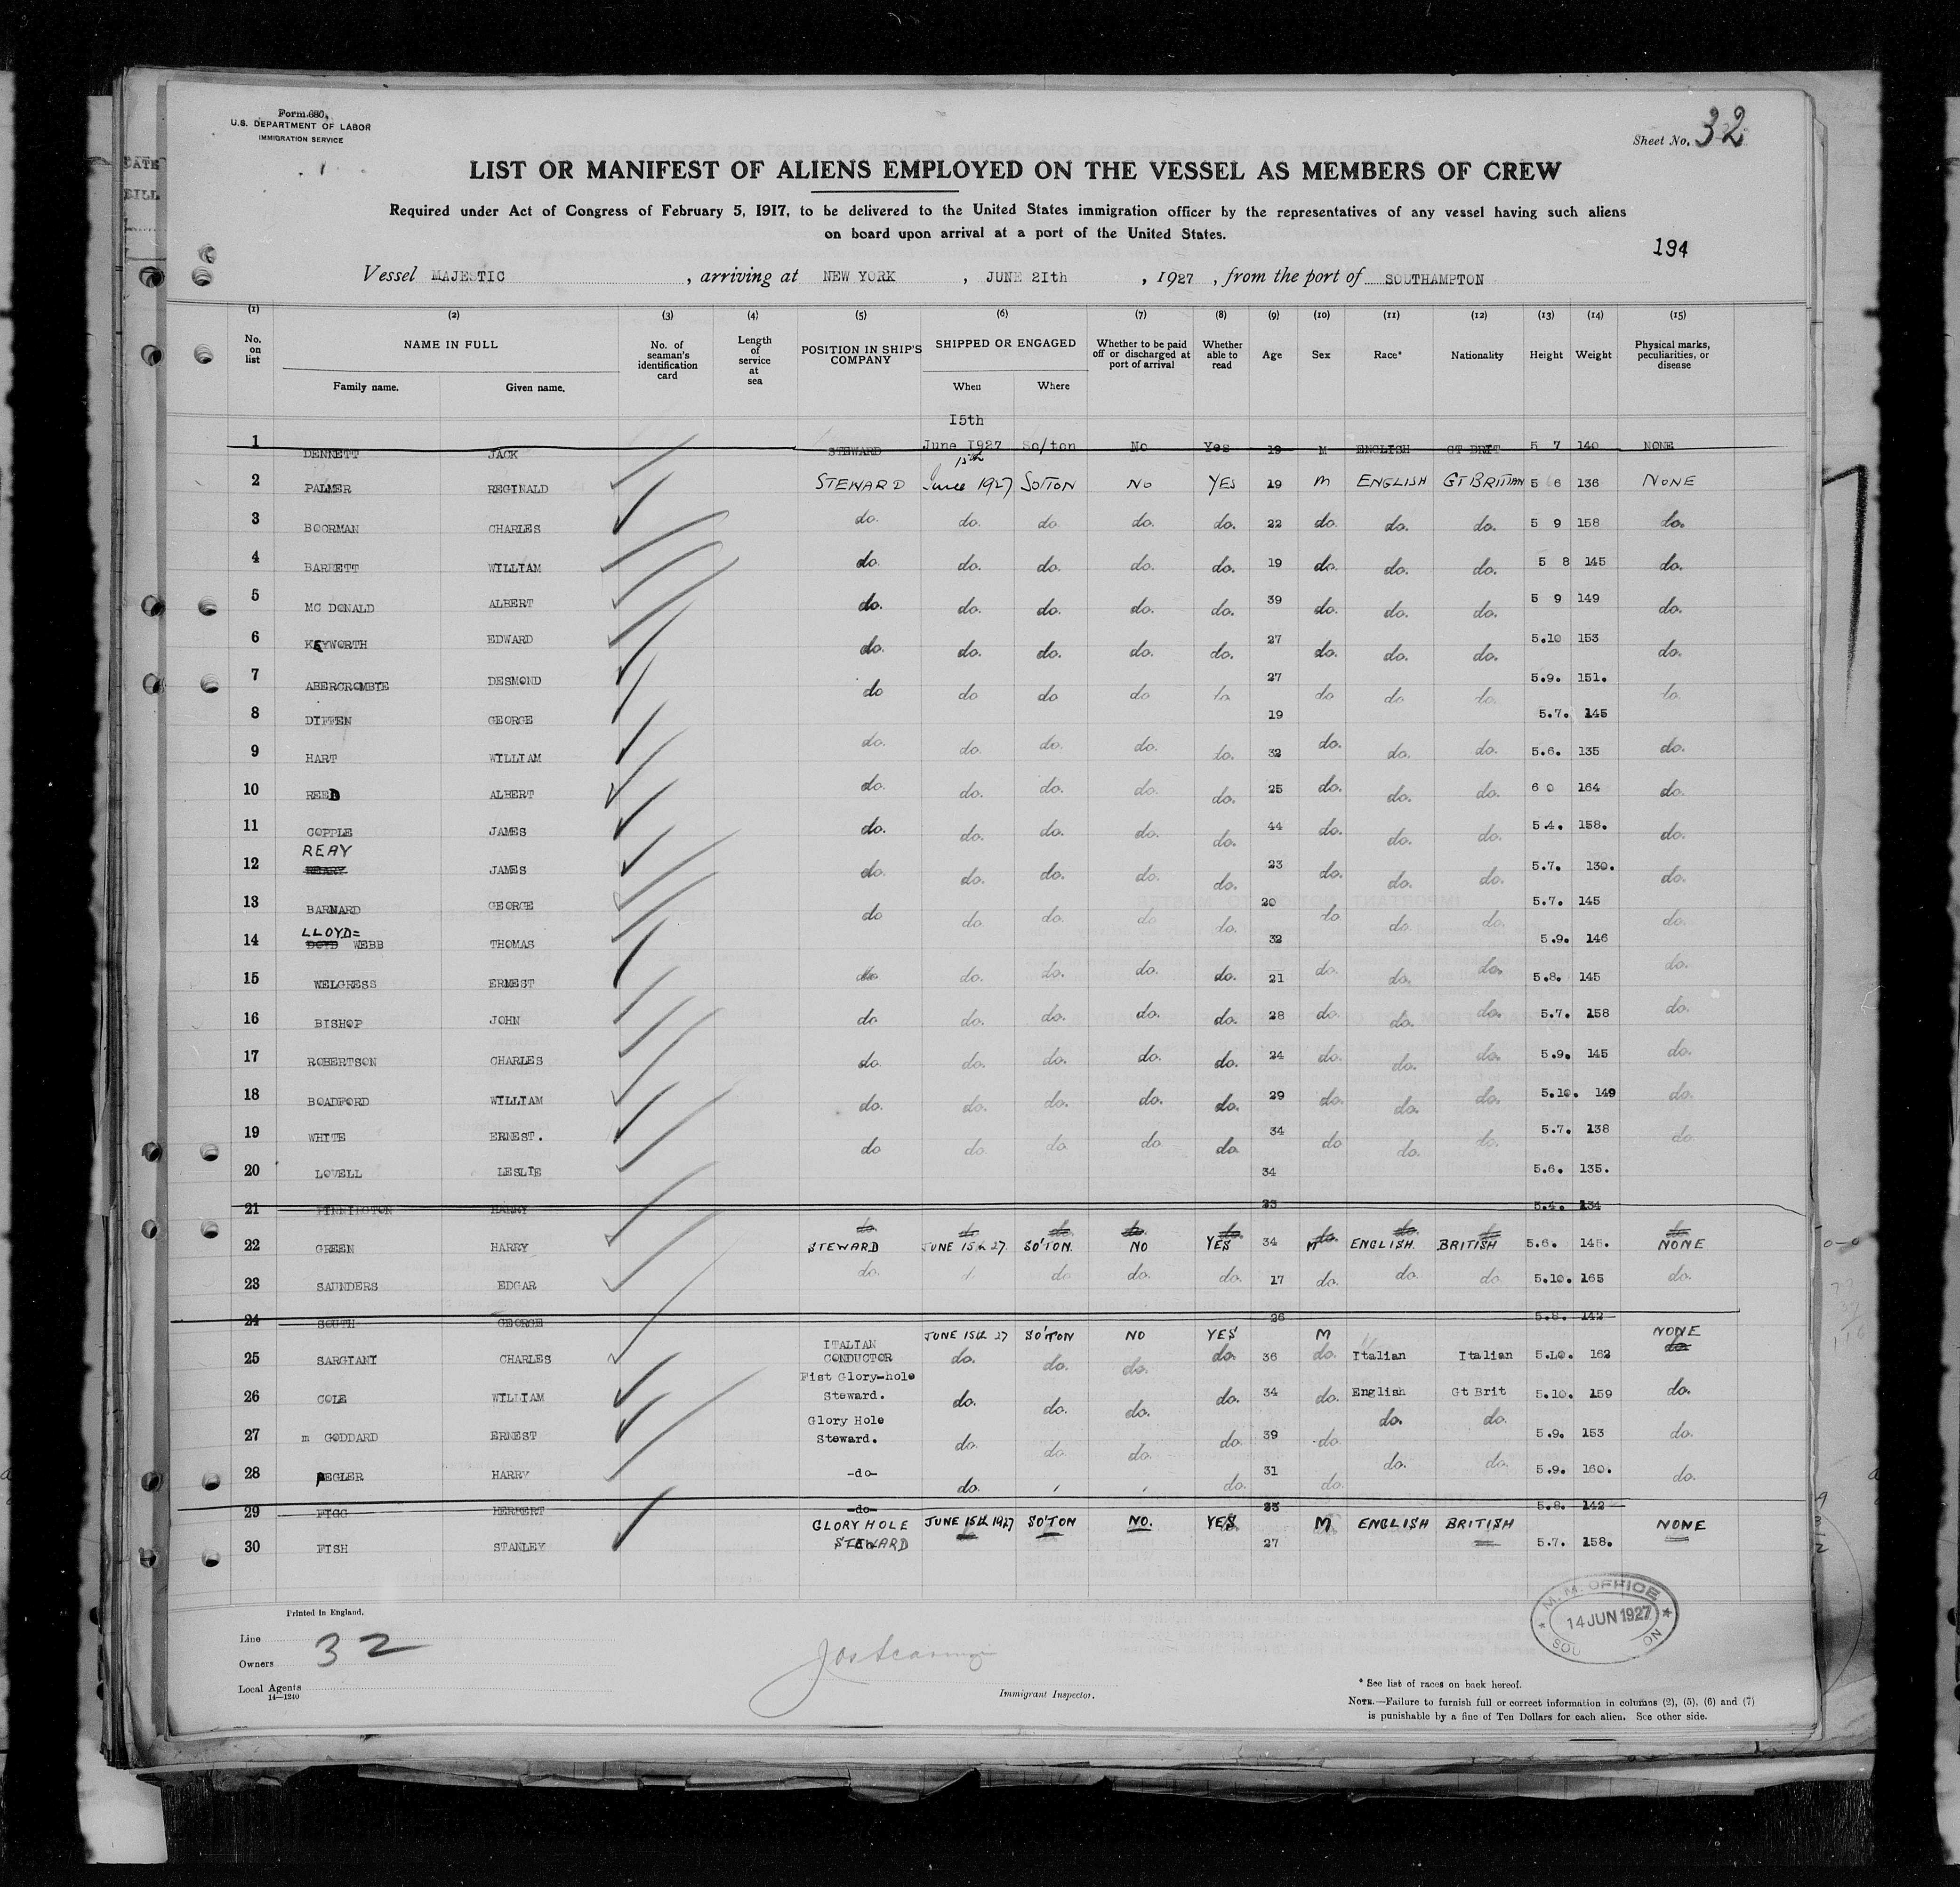 Form 680,
U.S. DEPARTMENT OF LABOR
IMMIGRATION SERVICE
Sheet No. 32
LIST OR MANIFEST OF ALIENS EMPLOYED ON THE VESSEL AS MEMBERS OF CREW
Required under Act of Congress of February 5, 1917, to be delivered to the United States immigration officer by the representatives of any vessel having such aliens
on board upon arrival at a port of the United States.
194
Vessel MAJESTIC, arriving at NEW YORK, JUNE 21th, 1927, from the port of SOUTHAMPTON
(1) (2) (3) (4) (5) (6) (7) (8) (9) (10) (11) (12) (13) (14) (15)
No. on list NAME IN FULL Family name. Given name. No. of seaman's identification card Length of service at sea POSITION IN SHIP'S COMPANY SHIPPED OR ENGAGED When Where Whether to be paid off or discharged at port of arrival Whether able to read Age Sex Race* Nationality Height Weight Physical marks, peculiarities, or disease
15th
1 DENNETT JACK STEWARD June 1927 So/ton No Yes 19 M ENGLISH GT BRIT 5 7 140 NONE
15th
2 PALMER REGINALD STEWARD June 1927 SOTON NO YES 19 M ENGLISH GT BRITIAN 5 6 136 NONE
3 BOORMAN CHARLES do. do. do. do. do. 22 do. do. do. 5 9 158 do.
4 BARRETT WILLIAM do. do. do. do. do. 19 do. do. do. 5 8 145 do.
5 MC DONALD ALBERT do. do. do. do. do. 39 do. do. do. 5 9 149 do.
6 KEYWORTH EDWARD do. do. do. do. do. 27 do. do. do. 5.10 153 do.
7 ABERCROMBIE DESMOND do do do do do 27 do do do. 5.9. 151. do.
8 DIFFEN GEORGE 19 5.7. 145
9 HART WILLIAM do. do. do. do. do. 32 do. do. do. 5.6. 135 do.
10 REED ALBERT do. do. do. do. do. 25 do. do. do. 6 0 164 do.
11 COPPLE JAMES do. do. do. do. do. 44 do. do. do. 5 4. 158. do.
REAY
12 JAMES do. do. do. do. do. 23 do. do. do. 5.7. 130. do.
13 BARNARD GEORGE do do. do. do do. 20 do do. do. 5.7. 145 do.
LLOYD=
14 WEBB THOMAS 32 5.9. 146
15 WELGRESS ERNEST do do. do. do. do. 21 do. do. do. 5.8. 145 do.
16 BISHOP JOHN do. do. do. do. do. 28 do. do. do. 5.7. 158 do.
17 ROBERTSON CHARLES do. do. do. do. do. 24 do. do. do. 5.9. 145 do.
18 BOADFORD WILLIAM do. do. do. do. do. 29 do. do. do. 5.10. 149 do.
19 WHITE ERNEST. do do. do do do. 34 do do. do. 5.7. 138 do.
20 LOVELL LESLIE 34 5.6. 135.
21 PINNINGTON HARRY 23 5.4. 134
do do do do do do do do do
22 GREEN HARRY STEWARD JUNE 15th 27 SO'TON. NO YES 34 M ENGLISH. BRITISH 5.6. 145. NONE
23 SAUNDERS EDGAR do. do do. do. 17 do. do. do. 5.10. 165 do.
24 SOUTH GEORGE 26 5.8. 142
JUNE 15th 27 SO'TON NO YES M NONE
25 SARGIANI CHARLES ITALIAN CONDUCTOR do. do. do. do. 36 do. Italian Italian 5.10. 162 do.
26 COLE WILLIAM Fist Glory-hole Steward. do. do. do. do. 34 do. English Gt Brit 5.10. 159 do.
27 m GODDARD ERNEST Glory Hole Steward. do. do. do. do. 39 do. do. do. 5.9. 153 do.
28 PEGLER HARRY -do- do. do. 31 do. do. do. 5.9. 160. do.
29 FIGG HERBERT -do- 23 5.8. 142
GLORY HOLE JUNE 15th 1927 SO'TON NO. YES M ENGLISH BRITISH NONE
30 FISH STANLEY STEWARD 27 5.7. 158.
Printed in England.
Line
Owners 32
Local Agents
14—1240
Immigrant Inspector.
M. M. OFFICE
14 JUN 1927
* See list of races on back hereof.
NOTE.—Failure to furnish full or correct information in columns (2), (5), (6) and (7)
is punishable by a fine of Ten Dollars for each alien. See other side.